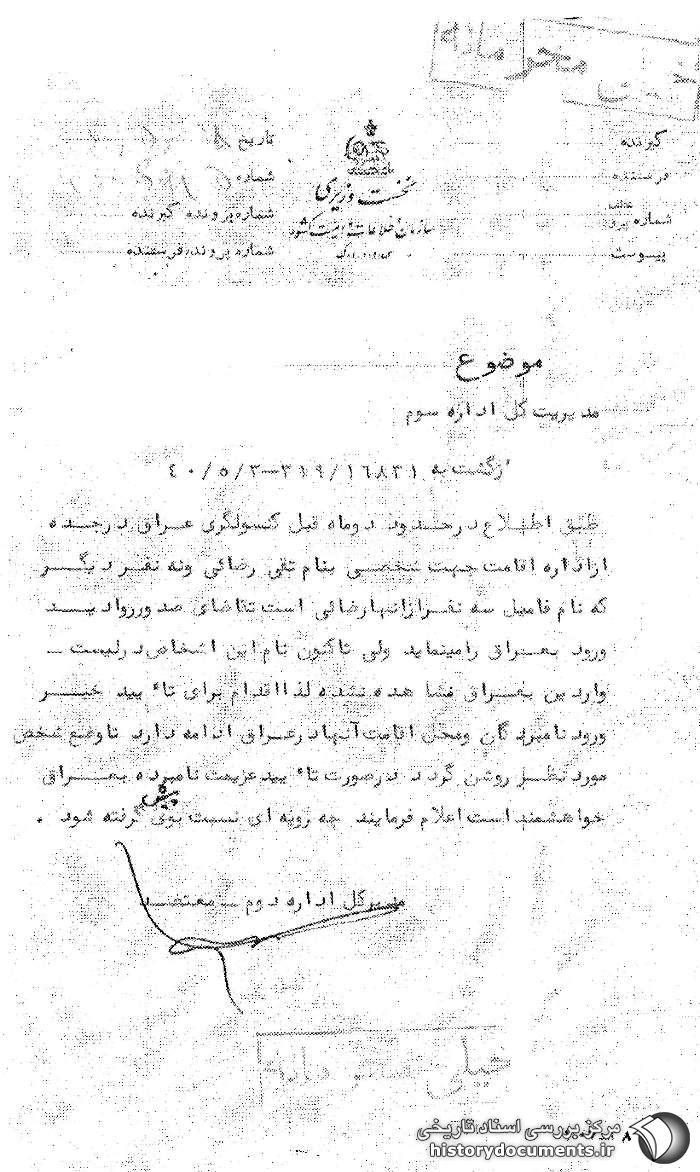 خیلی محرمانه
گیرنده
فرستنده
شماره عطف پرونده
پیوست
نخست وزیری
سازمان اطلاعات و امنیت کشور
تاریخ
شماره
شماره پرونده گیرنده
شماره پرونده فرستنده
موضوع
مدیریت کل اداره سوم
بازگشت به ۳۱۹/۱۶۸۳۱–۴۰/۵/۳
طبق اطلاع در حدود دوماه قبل کنسولگری عراق در جده
از اداره اقامت جهت شخصی بنام تقی رضائی ونه نفر دیگر
که نام فامیل سه نفر از آنها رضائی است تقاضای صدور روادید
ورود بعراق رامینماید ولی تاکنون نام این اشخاص در لیست –
واردین بعراق مشاهده نشده لذا اقدام برای تاٴیید خبر
ورود نامبردگان ومحل اقامت آنها درعراق ادامه دارد تاوضع شخص
مورد نظر روشن گردد در صورت تاٴیید عزیمت نامبرده بعراق
خواهشمند است اعلام فرمایند چه رویه ای نسبت بوی پیش گرفته شود .
مدیرکل اداره دوم – معتضد
خیلی محرمانه
مرکز بررسی اسناد تاریخی
historydocuments.ir